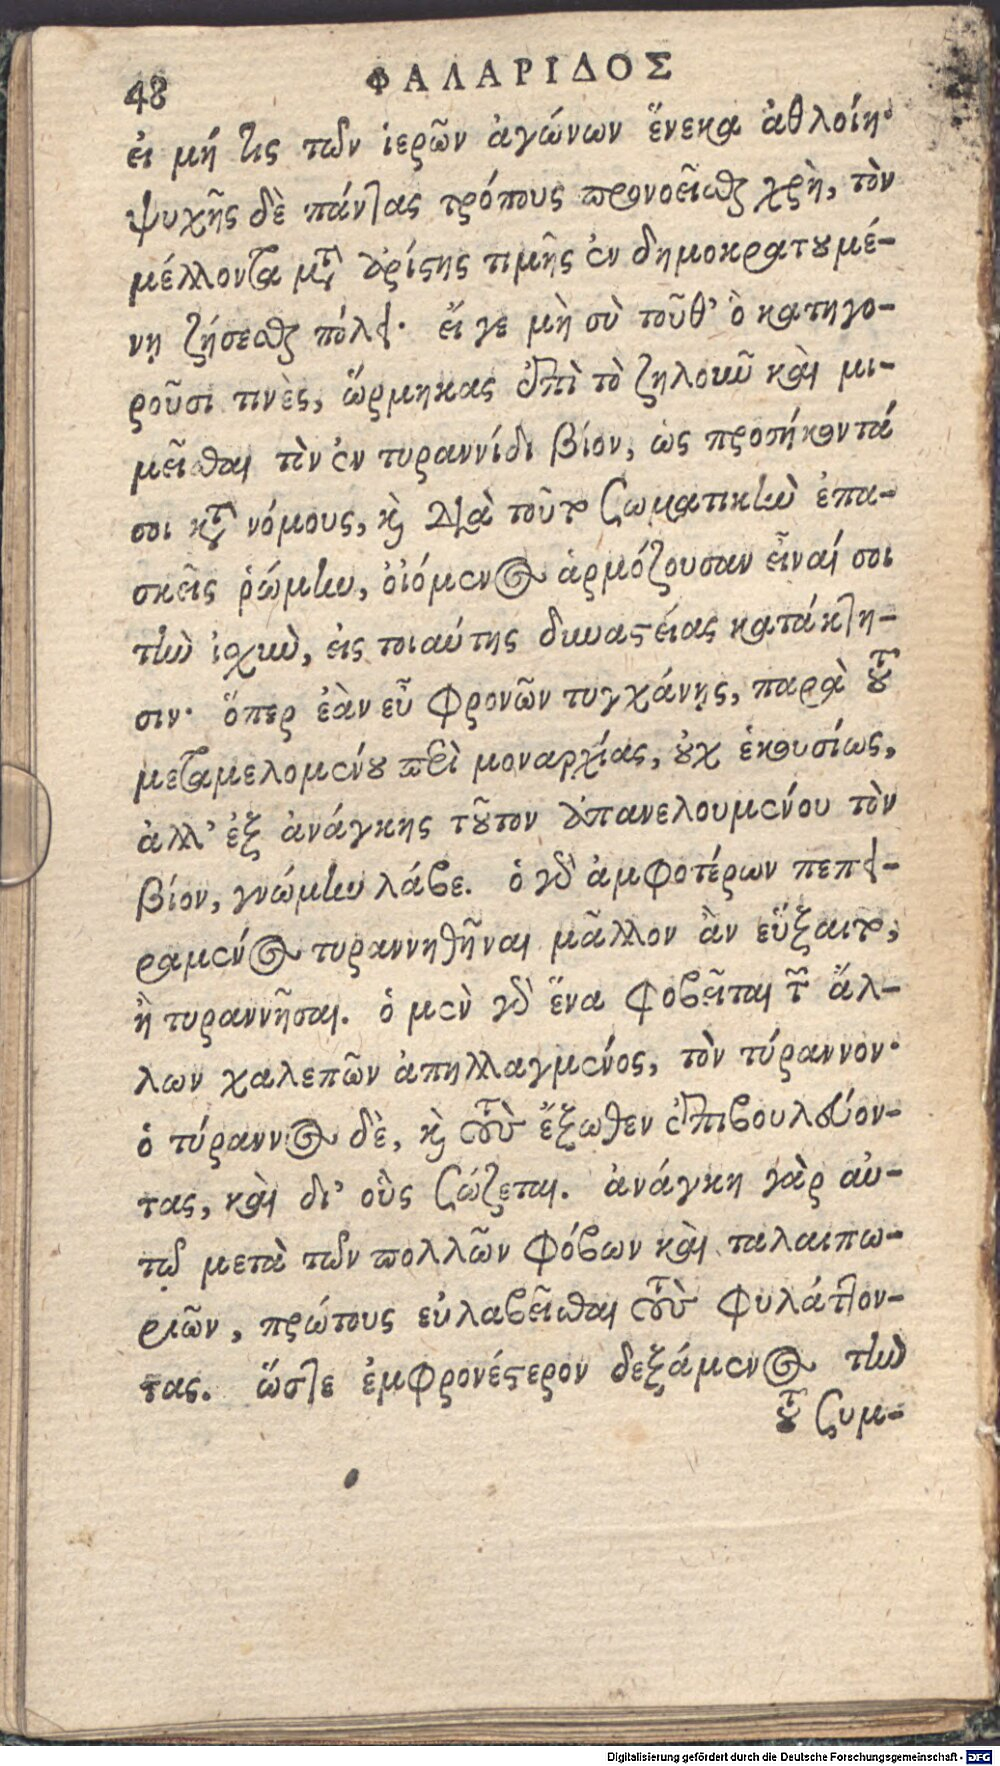 48 ΦΑΛΑΡΙΔΟΣ
εἰ μή τις τῶν ἱερῶν ἀγώνων ἕνεκα ἀθλοίη·
ψυχῆς δὲ πάντας τρόπους προνοεῖσθαι χρὴ, τὸν
μέλλοντα μετ' ἀρίστης τιμῆς ἐν δημοκρατουμέ-
νῃ ζήσεσθαι πόλει· εἴ γε μὴ σὺ τοῦθ' ὃ κατηγο-
ροῦσί τινὲς, ὥρμηκας ἐπὶ τὸ ζηλοῦν καὶ μι-
μεῖσθαι τὸν ἐν τυραννίδι βίον, ὡς προσήκοντά
σοι κατὰ νόμους, καὶ διὰ τοῦτο σωματικὴν ἐπα-
σκεῖς ῥώμην, οἰόμενος ἁρμόζουσαν εἶναί σοι
τὴν ἰσχὺν, εἰς τοιαύτης δυναστείας κατάκτη-
σιν· ὅπερ ἐὰν εὖ φρονῶν τυγχάνῃς, παρὰ τοῦ
μεταμελομένου περὶ μοναρχίας, οὐχ ἑκουσίως,
ἀλλ' ἐξ ἀνάγκης τοῦτον ἀπανελουμένου τὸν
βίον, γνώμην λάβε. ὁ γὰρ ἀμφοτέρων πεπει-
ραμένος τυραννηθῆναι μᾶλλον ἂν εὔξαιτο,
ἢ τυραννῆσαι. ὁ μὲν γὰρ ἕνα φοβεῖται τῶν ἄλ-
λων χαλεπῶν ἀπηλλαγμένος, τὸν τύραννον·
ὁ τύραννος δὲ, καὶ τοὺς ἔξωθεν ἐπιβουλεύον-
τας, καὶ δι' οὓς σώζεται. ἀνάγκη γὰρ αὐ-
τῷ μετὰ τῶν πολλῶν φόβων καὶ ταλαιπω-
ριῶν, πρώτους εὐλαβεῖσθαι τοὺς φυλάττον-
τας. ὥστε ἐμφρονέστερον δεξάμενος τὴν
τοῦ συμ-
Digitalisierung gefördert durch die Deutsche Forschungsgemeinschaft - DFG